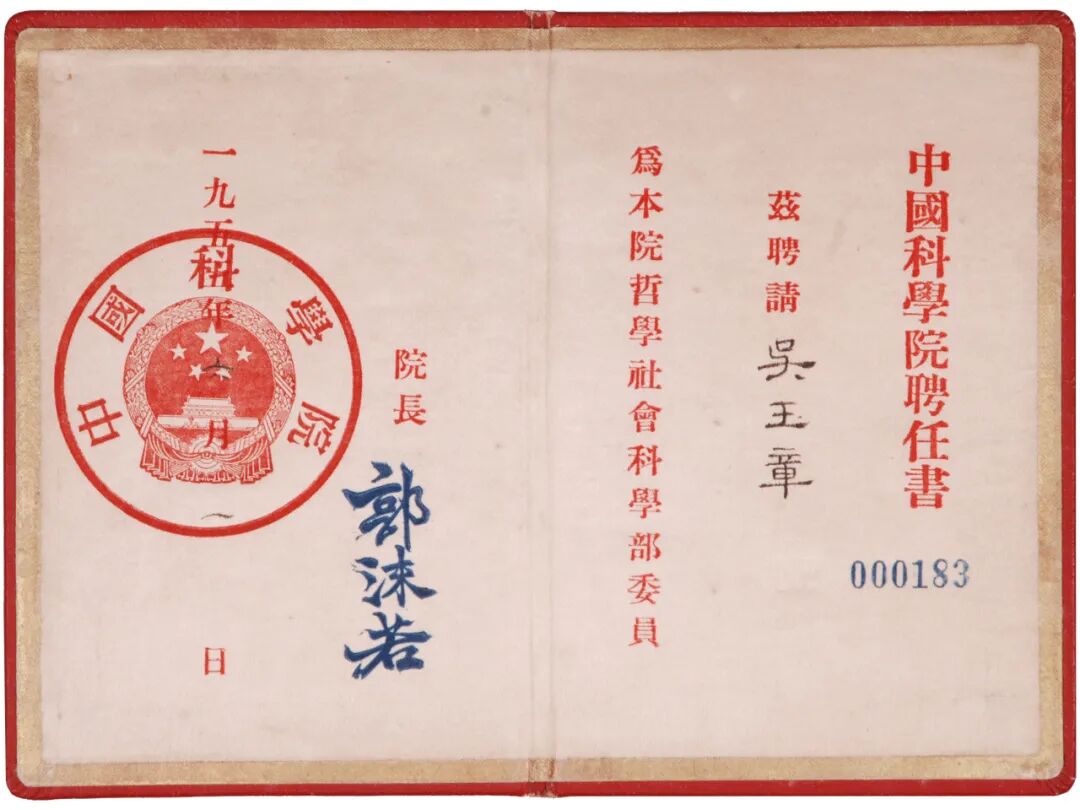 中國科學院聘任書
000183
茲聘請 吳玉章
爲本院哲學社會科學部委員
院長 郭沫若
一九五 年六月一日
中國科學院